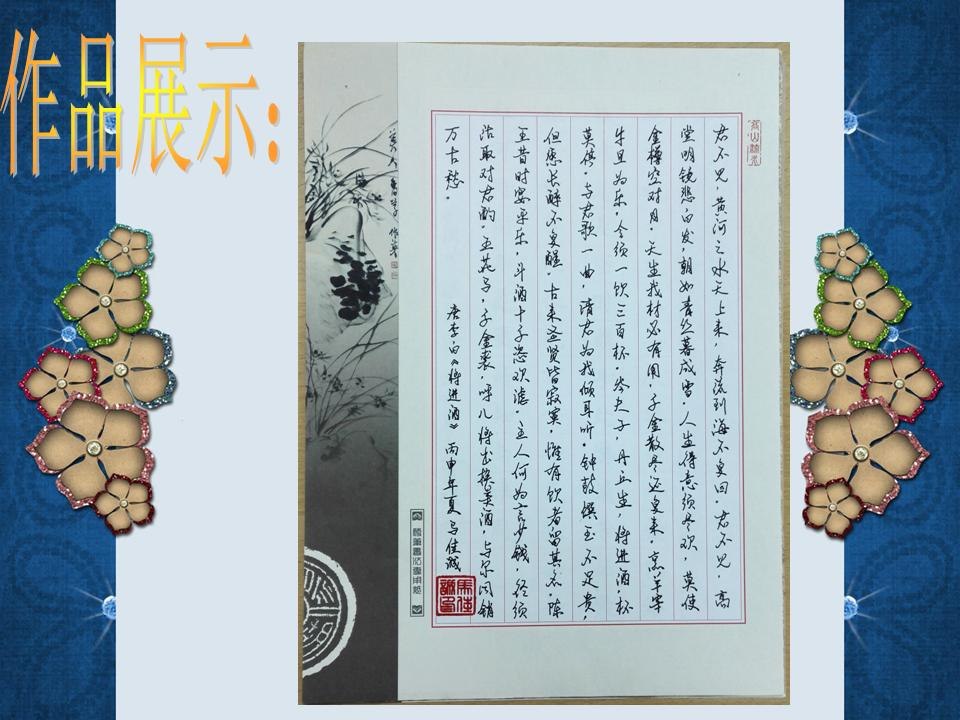 作品展示：
君不见，黄河之水天上来，奔流到海不复回。君不见，高
堂明镜悲白发，朝如青丝暮成雪。人生得意须尽欢，莫使
金樽空对月。天生我材必有用，千金散尽还复来。烹羊宰
牛且为乐，会须一饮三百杯。岑夫子，丹丘生，将进酒，杯
莫停。与君歌一曲，请君为我倾耳听。钟鼓馔玉不足贵，
但愿长醉不复醒。古来圣贤皆寂寞，惟有饮者留其名。陈
王昔时宴平乐，斗酒十千恣欢谑。主人何为言少钱，径须
沽取对君酌。五花马，千金裘，呼儿将出换美酒，与尔同销
万古愁。
唐李白《将进酒》 丙申年夏 马佳诚